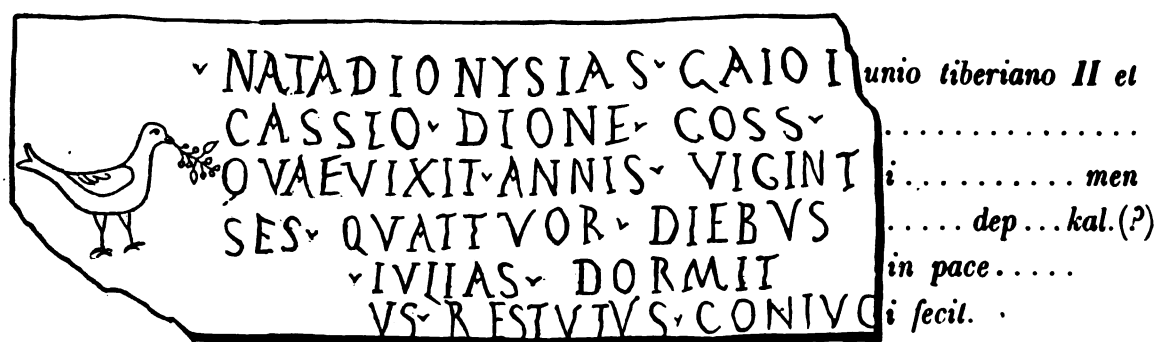 NATA DIONYSIAS GAIO I unio tiberiano II et
CASSIO DIONE COSS . . . . . . . . . . . . . . .
QVAE VIXIT ANNIS VIGINT i . . . . . . . . . . . men
SES QVATTVOR DIEBVS . . . . . dep . . . kal. (?)
IVLIAS DORMIT in pace . . . . .
VS RESTVTVS CONIVG i fecit.